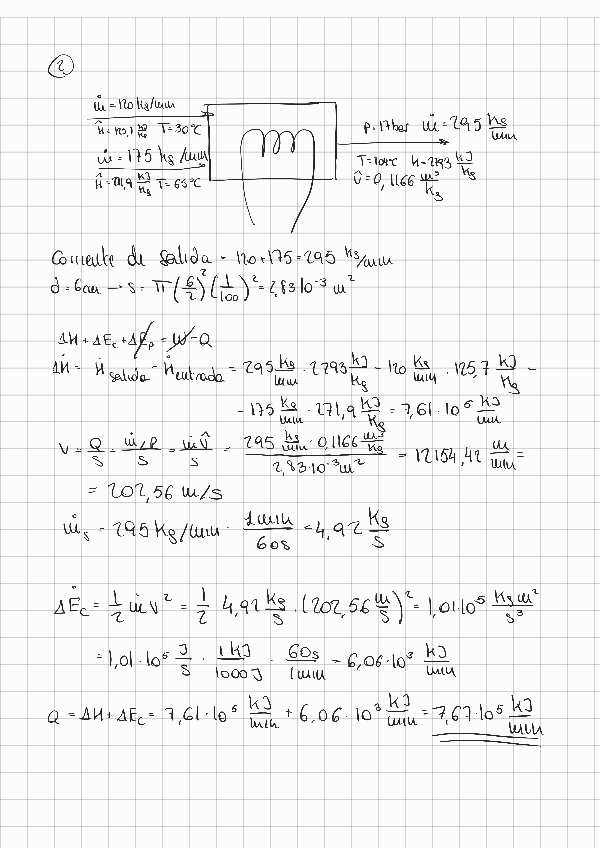 2
ṁ = 120 kg/min
Ĥ = 125,7 kJ/kg T = 30ºC
ṁ = 175 kg/min
Ĥ = 271,9 kJ/kg T = 65ºC
P = 17 bar ṁ = 295 kg/min
T = 204ºC H = 2793 kJ/kg
V̂ = 0,1166 m³/kg
Corriente de salida = 120 + 175 = 295 kg/min
d = 6cm → S = π (6/2)² (1/100)² = 2,83·10⁻³ m²
ΔH + ΔEc + ΔEp = W - Q
ΔḢ = Ḣ salida - Ḣ entrada = 295 kg/min · 2793 kJ/kg - 120 kg/min · 125,7 kJ/kg -
- 175 kg/min · 271,9 kJ/kg = 7,61·10⁵ kJ/min
V = Q/S = ṁ/ρ/S = ṁV̂/S = 295 kg/min · 0,1166 m³/kg / 2,83·10⁻³ m² = 12154,42 m/min =
= 202,56 m/s
ṁs = 295 kg/min · 1 min/60s = 4,92 kg/s
ΔĖc = 1/2 ṁ v² = 1/2 4,92 kg/s · (202,56 m/s)² = 1,01·10⁵ kg m²/s³
= 1,01·10⁵ J/s · 1 kJ/1000 J · 60s/1 min = 6,06·10³ kJ/min
Q = ΔH + ΔEc = 7,61·10⁵ kJ/min + 6,06·10³ kJ/min = 7,67·10⁵ kJ/min